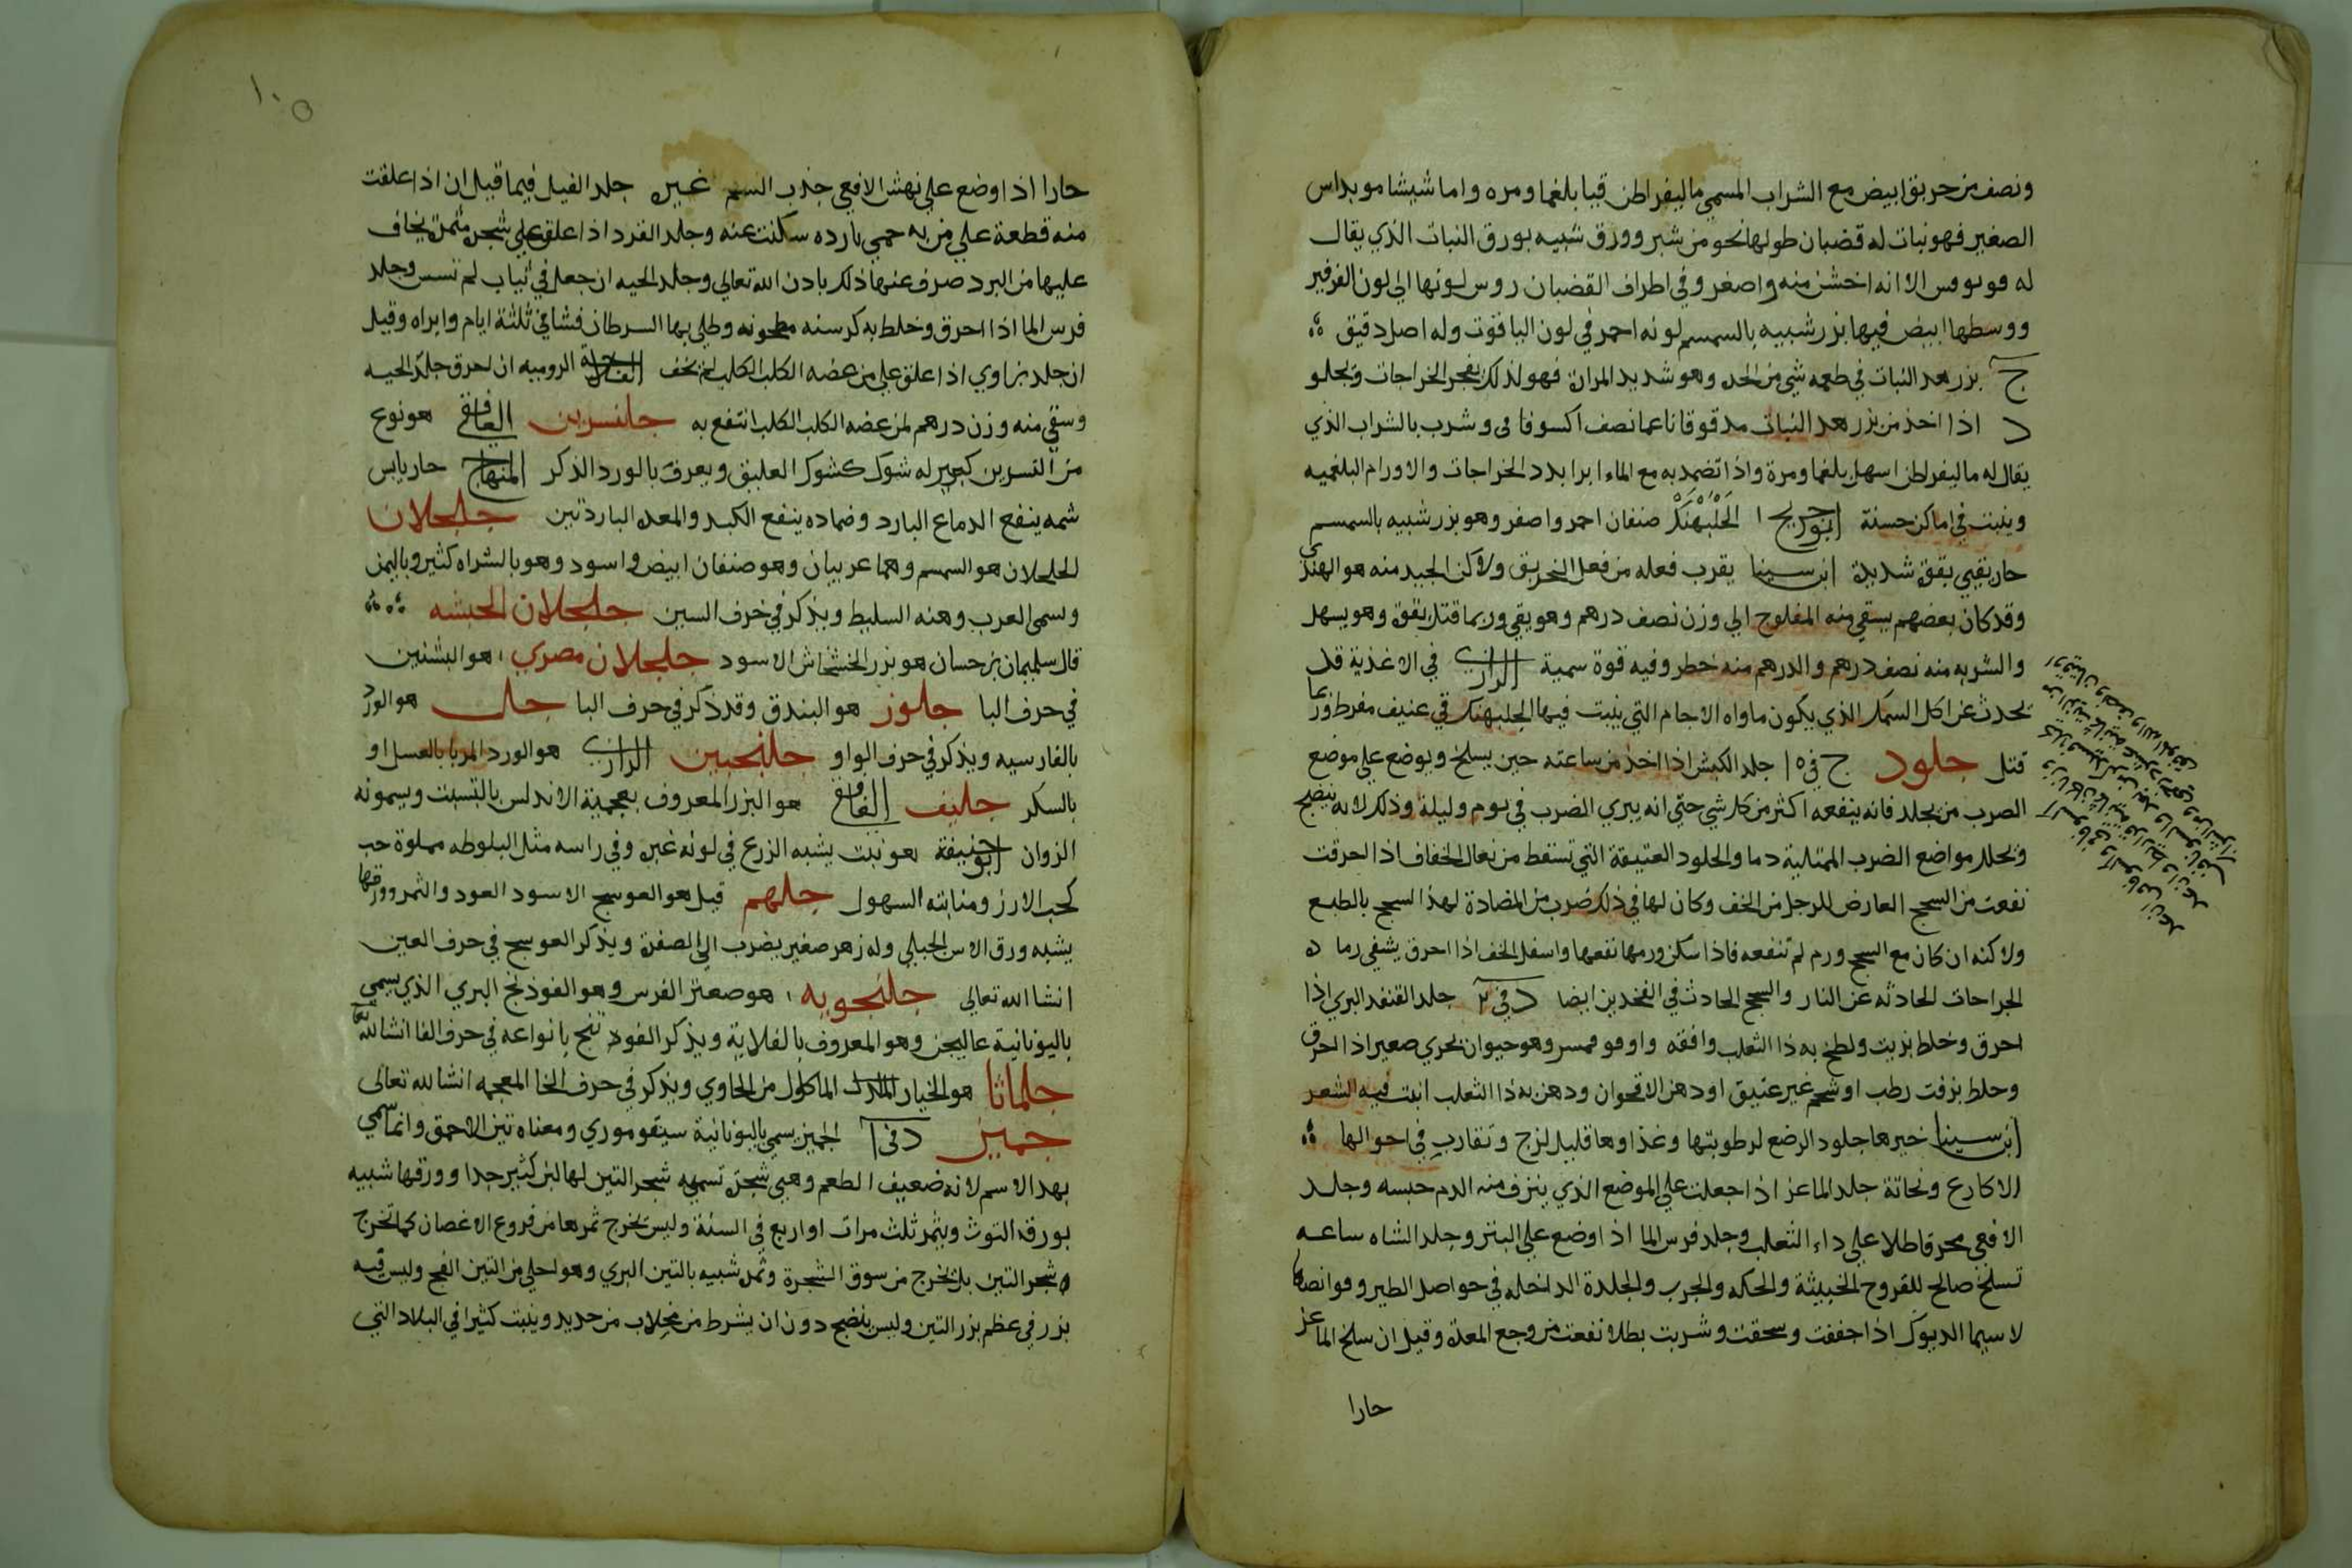 ونصف من خربق ابيض مع الشراب المسمي ماليقراطن قيا بلغما ومره واما شيشا مو يداس
الصغير فهو نبات له قضبان طولها نحو من شبر وورق شبيه بورق النبات الذي يقال
له الا انه اخشن منه واصغر وفي اطراف القضبان روس لونها الي لون الفرفير
ووسطها ابيض فيها بزر شبيه بالسمسم لونه احمر في لون الياقوت وله اصل دقيق
ج بزر هذا النبات في طعمه شي من الحده وهو شديد المرارة فهو لذلك يفجر الخراجات ويحلو
د اذا اخذ من بزر هذا النبات مدقوقا ناعما نصف اكسوفا في وشرب بالشراب الذي
يقال له ماليقراطن اسهل بلغما ومرة واذا تضمد به مع الماء ابرا بدد الخراجات والاورام البلغميه
وينبت في اماكن خشنة ابن جريج الجَلْبَهْنَك صنفان احمر واصفر وهو بزر شبيه بالسمسم
حار يقيي بقوة شديدة ابن سينا يقرب فعله من فعل الخربق ولاكن الجيد منه هو الهندي
وقد كان بعضهم يسقي منه المفلوج الي وزن نصف درهم وهو يقي وربما قتل بقوة وهو يسهل
والشربه منه نصف درهم والدرهم منه خطر وفيه قوة سمية الرازي في الاغذية قد
يحدث عن اكل السمك الذي يكون ماواه الاجام التي ينبت فيها الجلبهنك قي عنيف مفرط وربما
قتل جلود ج في ١٥ جلد الكبش اذا اخذ من ساعته حين يسلخ ويوضع علي موضع
الضرب من يجلد فانه ينفعه اكثر من كل شي حتي انه يبري الضرب في يوم وليلة وذلك لانه ينضج
ويحلل مواضع الضرب الممتلية دما والجلود العتيقة التي تسقط من نعال الخفاف اذا احرقت
نفعت من السحج العارض للرجل من الخف وكان لها في ذلك ضرب من المضادة لهذا السحج بالطبع
ولاكنه ان كان مع السحج ورم لم تنفعه فاذا سكن ورمها نفعها واسفل الخف اذا احرق يشفي رما د
الجراحات الحادثه عن النار والسحج الحادث في الفخذين ايضا د في ٢ جلد القنفد البري اذا
احرق وخلط بزيت ولطخ به ذا الثعلب وافقه وهو حيوان بحري صغير اذا احرق
وخلط بزفت رطب او شحم غير عتيق او دهن الاقحوان ودهن به ذا الثعلب انبت فيه الشعر
ابن سينا خيرها جلود الرضع لرطوبتها وغذاوها قليل لزج وتقارب في احوالها
الاكارع ونحاتة جلد الماعز اذا جعلت علي الموضع الذي ينزف منه الدم حبسه وجلد
الافعي محرقا طلا علي داء الثعلب وجلد فرس الما اذا وضع علي البثر وجلد الشاه ساعه
تسلخ صالح للقروح الخبيثة والحكه والجرب والجلدة الداخله في حواصل الطير وقوانصها
لا سيما الديوك اذا جففت وسحقت وشربت بطلا نفعت من وجع المعدة وقيل ان سلخ الماعز
حارا
١٠٥
حارا اذا وضع علي نهش الافعي جذب السم غيره جلد الفيل فيما قيل ان اذا علقت
منه قطعة علي من به حمي بارده سكنت عنه وجلد القرد اذا علق علي شجرة مثمرة يخاف
عليها من البرد صرف عنها ذلك باذن الله تعالي وجلد الحيه ان جعل في ثياب لم تسس وجلد
فرس الما اذا احرق وخلط به كرسنه مطحونه وطلي بها السرطان فشافي ثلثة ايام وابراه وقيل
ان جلد بن اوي اذا علق علي من عضه الكلب الكلب لم يخف الفلاحة الروميه ان احرق جلد الحيه
وسقي منه وزن درهم لمن عضه الكلب الكلب انتفع به جلنسرين الغافقي هو نوع
من النسرين كبير له شوك كشوك العليق ويعرف بالورد الذكر المنهاج حار يابس
شمه ينفع الدماغ البارد وضماده ينفع الكبد والمعده الباردتين جلجلان
الجلجلان هو السمسم وهما عربيان وهو صنفان ابيض واسود وهو بالشراه كثير وباليمن
وتسمي العرب دهنه السليط ويذكر في حرف السين جلجلان الحبشه
قال سليمان بن حسان هو بزر الخشخاش الاسود جلجلان مصري هو البشنين
في حرف البا جلوز هو البندق وقد ذكر في حرف البا جل هو الورد
بالفارسيه ويذكر في حرف الواو جلنجبين الرازي هو الورد المربا بالعسل او
بالسكر جليف الغافقي هو البزر المعروف بعجمية الاندلس بالتسبت ويسمونه
الزوان ابو حنيفة هو نبت يشبه الزرع في لونه غبره وفي راسه مثل البلوطه مملوة حب
كحب الارز ومنابته السهول جلهم قيل هو العوسج الاسود العود والثمر وورقها
يشبه ورق الاس الجبلي وله زهر صغير يضرب الي الصفرة ويذكر العوسج في حرف العين
انشا الله تعالي جلنجويه هو صعتر الفرس وهو الفوذنج البري الذي يسمي
باليونانية عاليجن وهو المعروف بالفلاية ويذكر الفودنج بانواعه في حرف الفا انشا الله تع
جلماثا هو الخيار الماكول من الحاوي ويذكر في حرف الخا المعجمه انشا الله تعالي
جميز د في ١ الجميز يسمي باليونانية سيقوموري ومعناه تين الاحمق وانما سمي
بهذا الاسم لانه ضعيف الطعم وهي شجرة تسميه شجر التين لها لبن كثير جدا وورقها شبيه
بورقه التوث ويثمر ثلث مرات او اربع في السنة وليس يخرج ثمرها من فروع الاغصان كما تخرج
شجر التين بل يخرج من سوق الشجرة وثمره شبيه بالتين البري وهو احلي من التين الفج وليس فيه
بزر في عظم بزر التين وليس ينضج دون ان يشرط من مخلاب من حديد وينبت كثيرا في البلاد التي